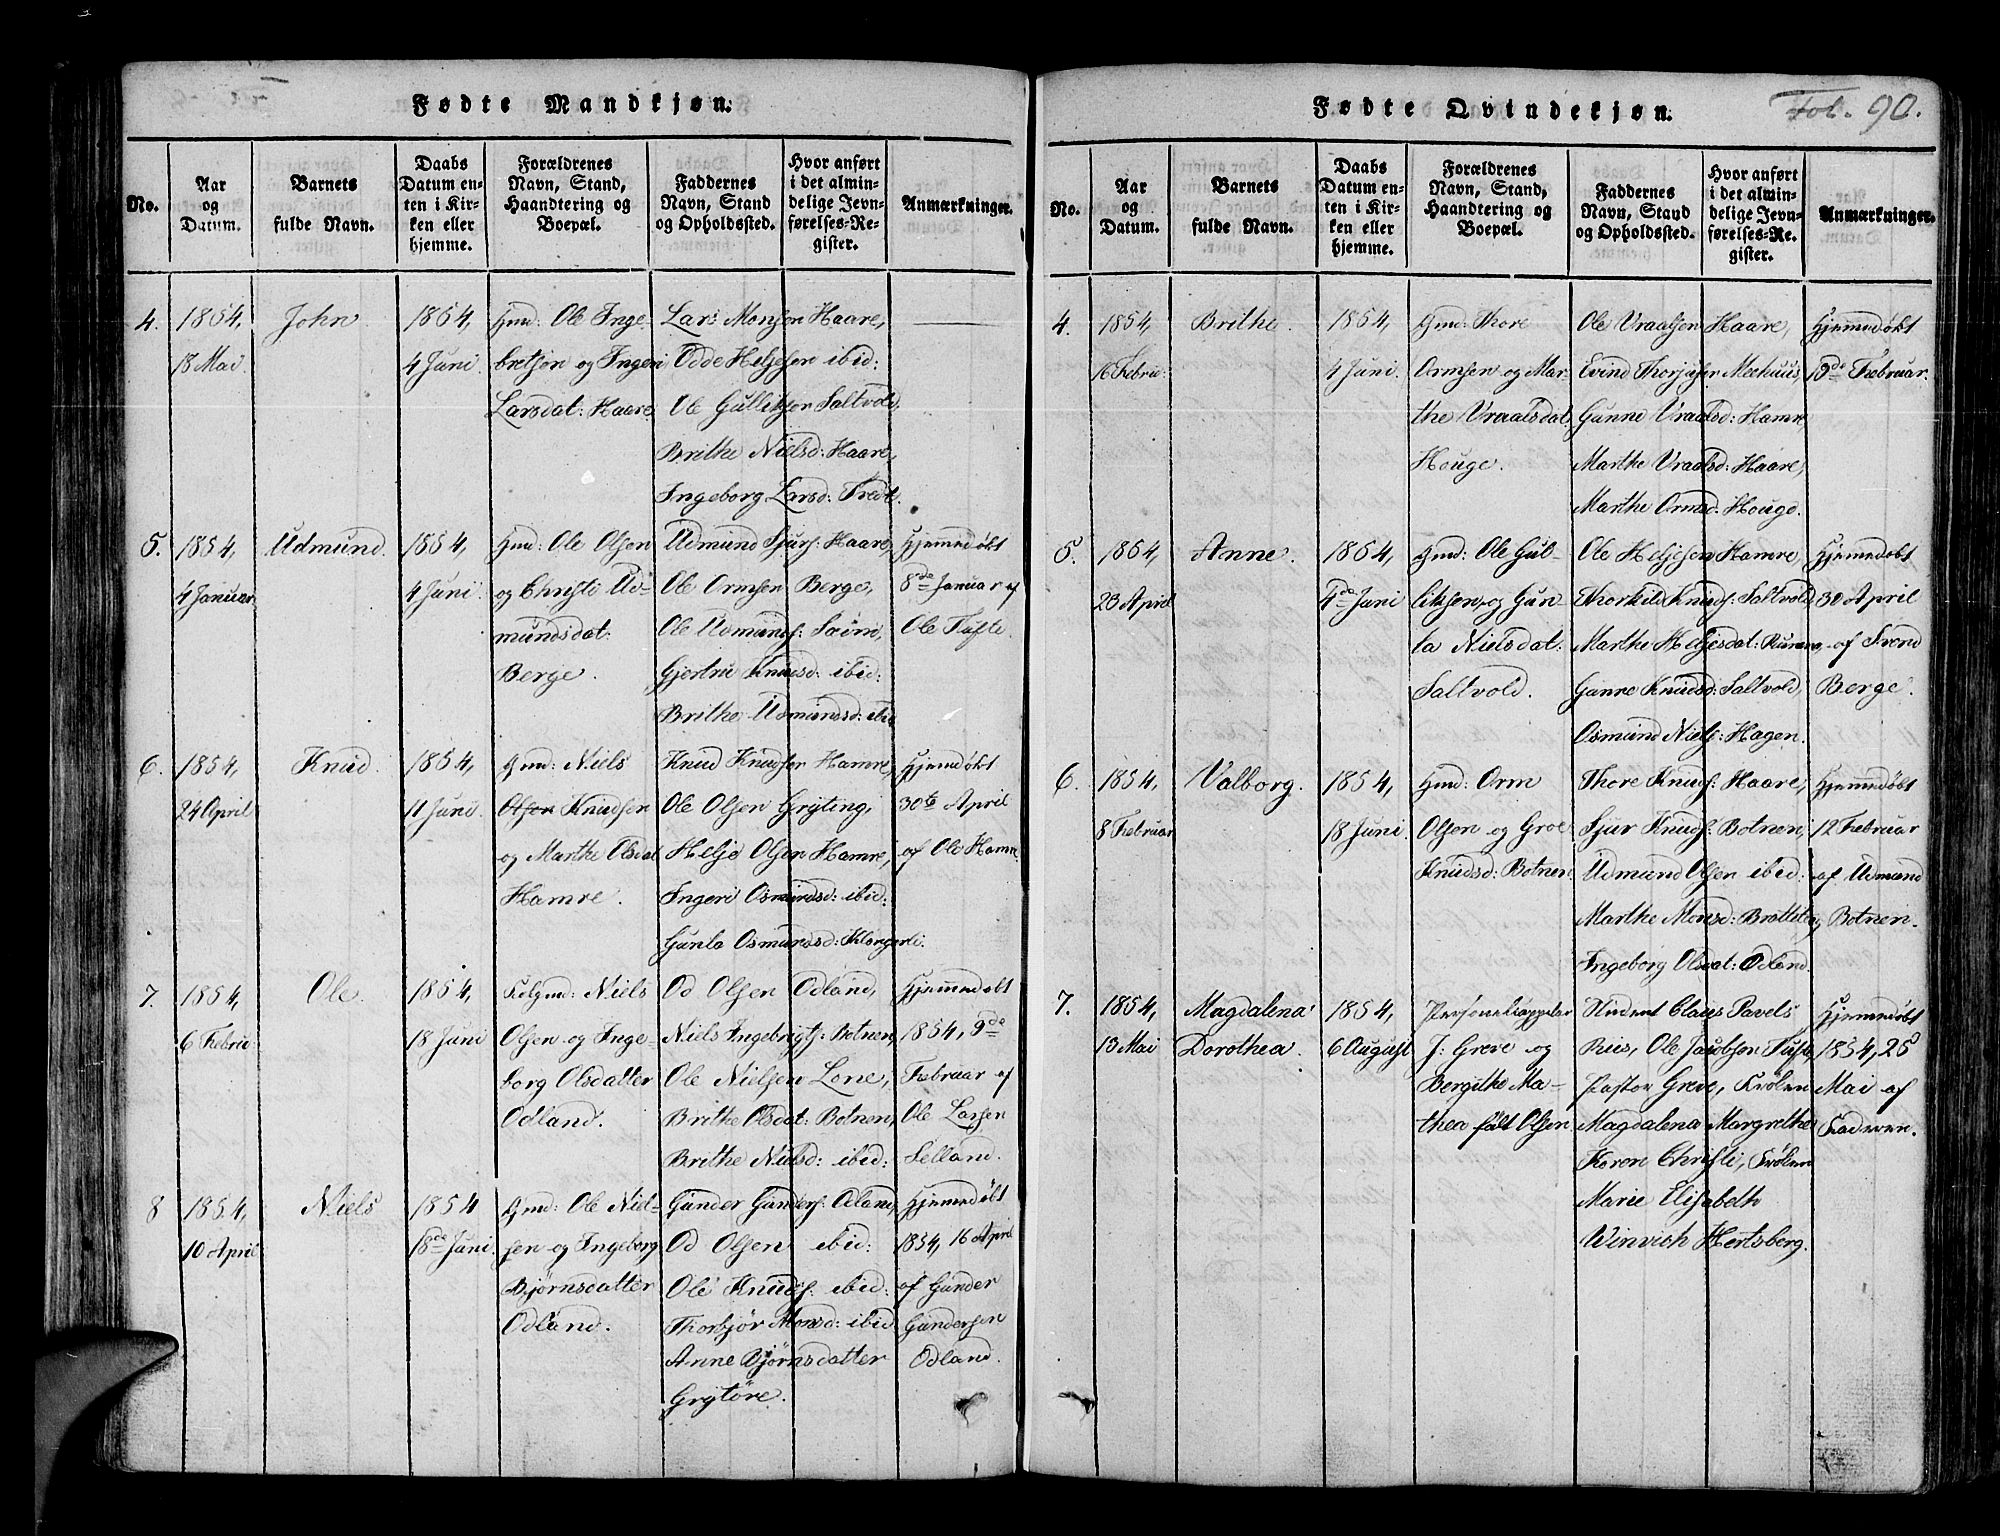 Fødte Mandkjøn.
No.
Aar
og
Datum.
Barnets
fulde Navn.
Daabs
Datum en-
ten i Kir-
ken eller
hjemme.
Forældrenes
Navn, Stand,
Haandtering og
Boepæl.
Faddernes
Navn, Stand
og Opholdssted.
Hvor anført
i det almin-
delige Jevn-
førelses-Re-
gister.
Anmærkninger.
4.
1854,
18 Mai
John
1854,
4 Juni
Gmd: Ole Inge-
bretsøn og Ingeri
Larsdat: Haare
Lars Monsen Haare,
Odde Heljesen ibid:
Ole Gulliksen Saltvold,
Brithe Nielsd: Haare,
Ingeborg Larsd: Tredt.
5.
1854,
4 Januar
Udmund.
1854,
4 Juni
Gmd: Ole Olsen
og Christi Ud-
mundsdat:
Berge.
Udmund Sjurs: Haare,
Ole Ormsen Berge,
Ole Udmunds: Søim,
Gjertrue Knudsd: ibid:
Brithe Udmundsd: ibid
Hjemmedøbt
8de Januar af
Ole Tufte.
6.
1854,
24 April
Knud.
1854,
11 Juni
Gmd: Niels
Olsen Knudsen
og Marthe Olsdat
Hamre.
Knud Knudsen Hamre,
Ole Olsen Gryting,
Helje Olsen Hamre,
Ingeri Osmundsd: ibid:
Gunla Osmundsd: Klongerli.
Hjemdøbt
30te April
af Ole Hamre
7.
1854,
6 Febru
Ole.
1854,
18 Juni
Niels
Olsen og Inge-
borg Olsdatter
Odland.
Od Olsen Odland,
Niels Ingebrigts: Botnen,
Ole Nielsen Lone,
Brithe Olsdat: Botnen,
Brithe Nielsd: ibid:
Hjemmedøbt
1854, 9de
Februar af
Ole Larsen
Selland.
8
1854,
10 April
Niels
1854
18de Juni
Gmd: Ole Niel-
sen og Ingeborg
Bjørnsdatter
Odland.
Gunder Gunders: Odland,
Od Olsen ibid:
Ole Knuds: ibid:
Thorbjør Monsd: ibid
Anne Bjørnsdatter
Grytøre.
Hjemmedøbt
1854, 16 April
af Gunder
Gundersen
Odland.
Fødte Qvindekjøn.
Fol. 90.
No.
Aar
og
Datum.
Barnets
fulde Navn.
Daabs
Datum en-
ten i Kir-
ken eller
hjemme.
Forældrenes
Navn, Stand,
Haandtering og
Boepæl.
Faddernes
Navn, Stand
og Opholdssted.
Hvor anført
i det almin-
delige Jevn-
førelses-Re-
gister.
Anmærkninger.
4.
1854,
16 Febru:
Brithe.
1854,
4 Juni
Gmd: Thore
Ormsen og Mar-
the Vraalsdat,
Houge.
Ole Vraalsen Haare,
Evind Thorjuser Meehuus,
Gunne Vraalsd: Hamre
Marthe Vraalsd: Haare,
Marthe Ormsd. Houge.
Hjemmedøbt
19de Februar.
5.
1854,
23 April
Anne.
1854,
4de Juni
Gmd: Ole Gul-
liksen og Gun-
la Nielsdat.
Saltvold.
Ole Heljesen Hamre,
Thorkild Knuds: Saltvold
Marthe Heljesdat:
Gunne Knudsd: Saltvold,
Osmund Niels: Hagen.
Hjemmedøbt
30 April
af Svend
Berge.
6.
1854,
8 Februar
Valborg.
1854,
18 Juni.
Gmd: Orm
Olsen og Groe
Knudsd: Botnen.
Thore Knuds: Haare,
Sjur Knuds: Botnen,
Udmund Olsen ibid:
Marthe Monsd: Brattetey
Ingeborg Olsdat: Odland.
Hjemmedøbt
12 Februar
af Udmund
Botnen.
7.
1854,
13 Mai
Magdalena
Dorothea.
1854,
6 August
Personelcappelan
J: Greve og
Bergithe Ma-
thea født Olsen
Student Claus Pavels
Riis, Ole Jacobsen Tufte
Pastor Greve, Frøken
Magdalena Margrethe
Karen Christi, Frøken
Marie Elisabeth
Winvich Hertsberg.
Hjemmedøbt
1854, 25
Mai af
Faderen.